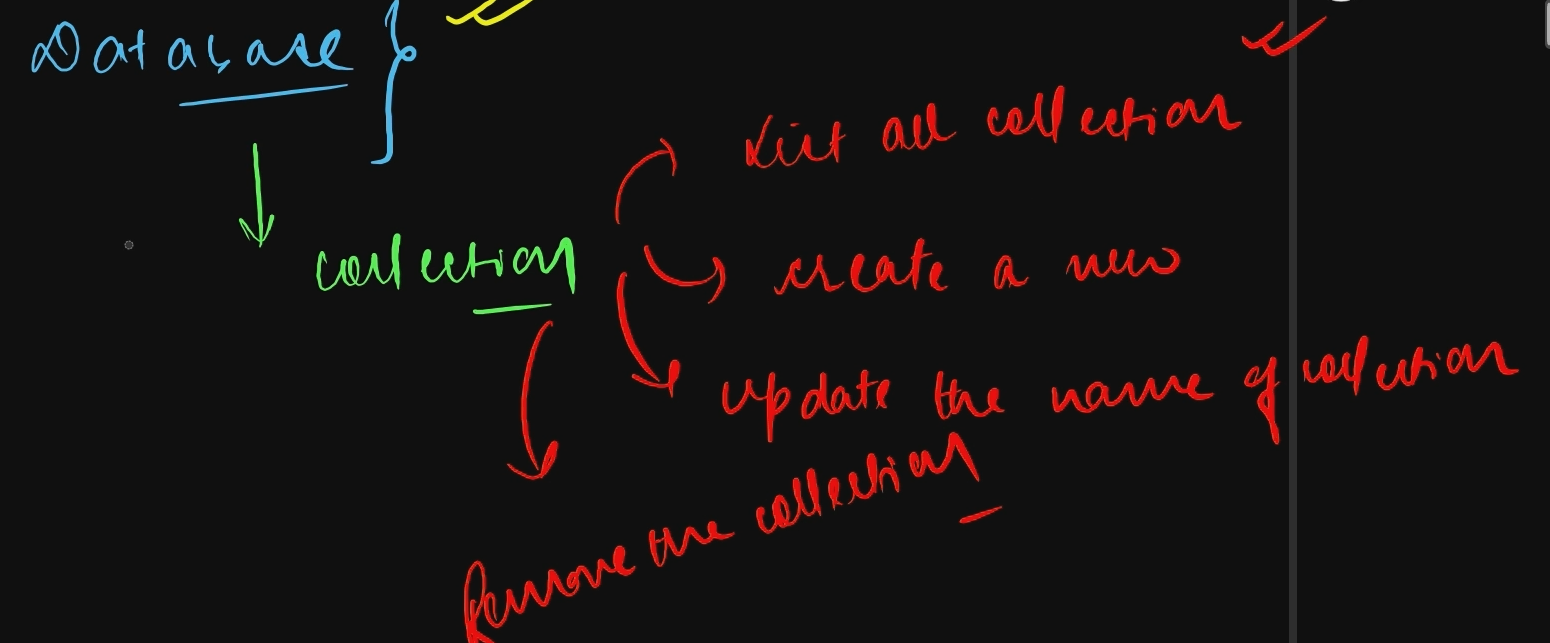 Database
List all collection
collection
create a new
update the name of collection
Remove the collection